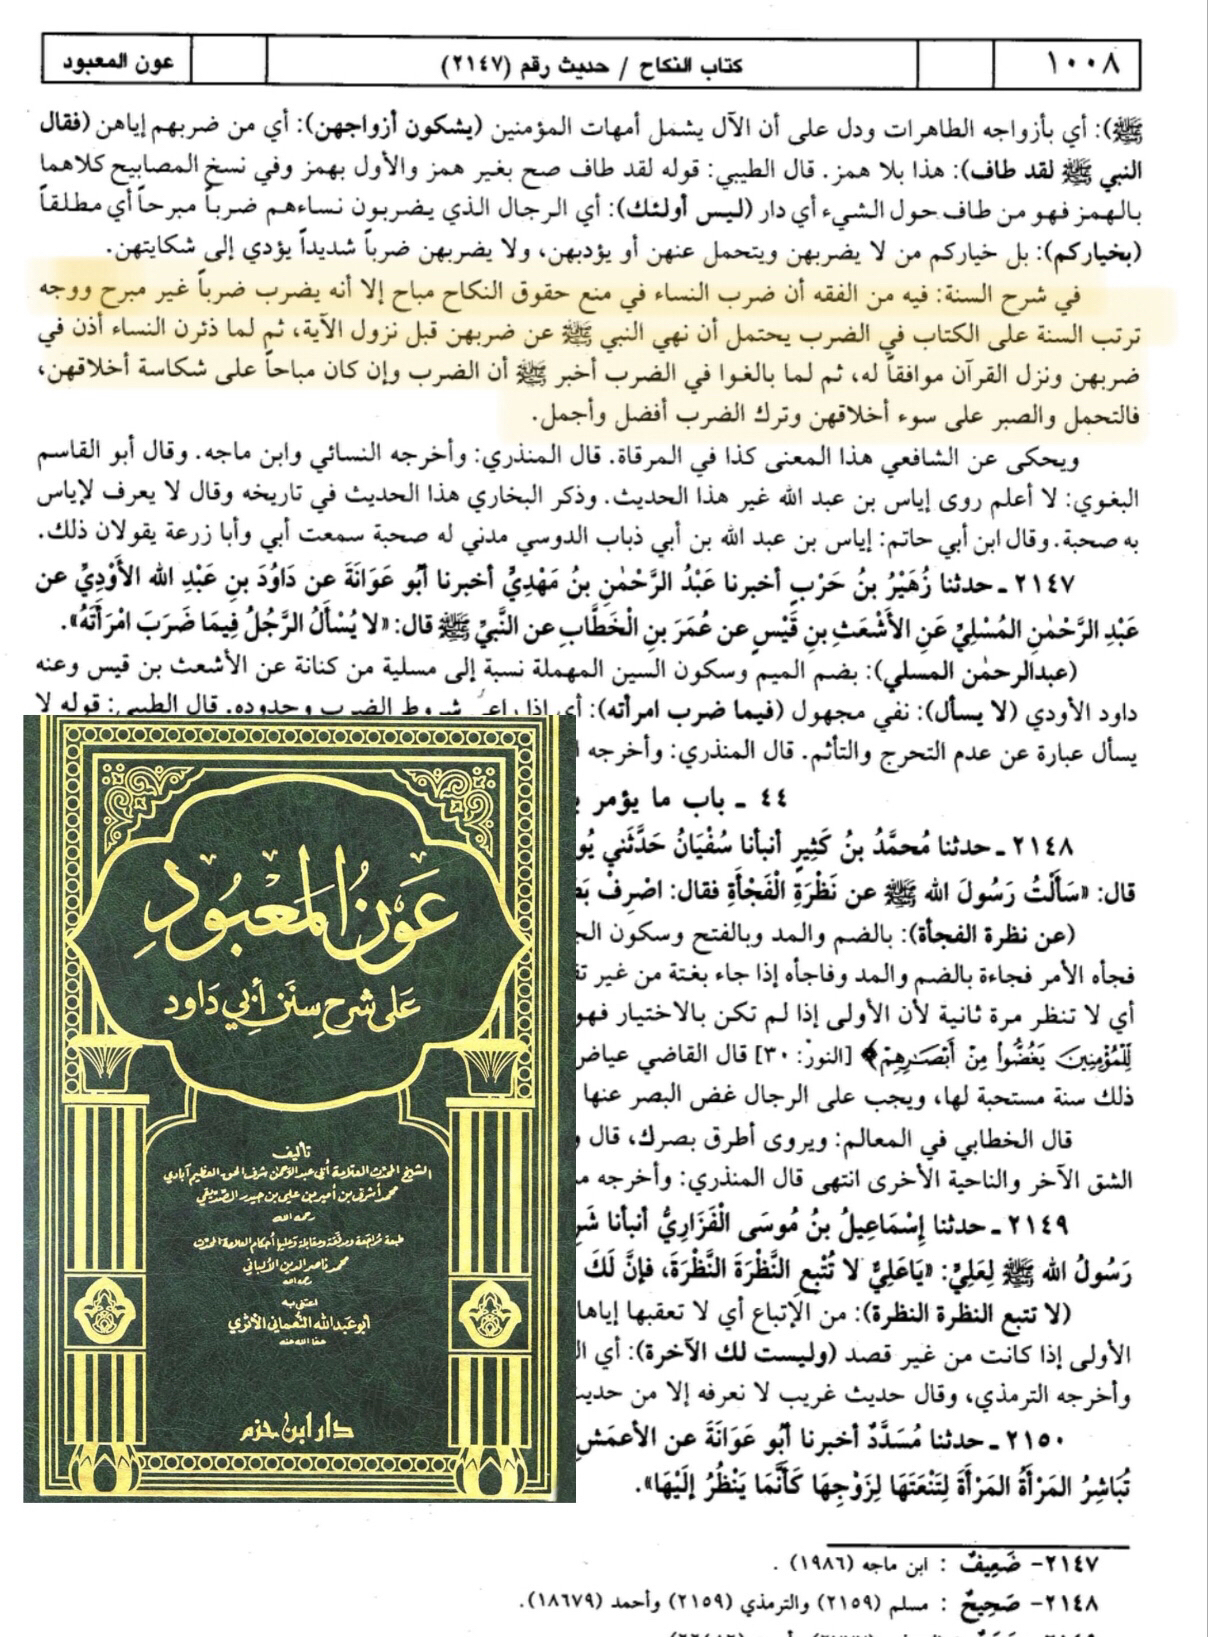 ١٠٠٨
كتاب النكاح / حديث رقم (٢١٤٧)
عون المعبود
ﷺ): أي بأزواجه الطاهرات ودل على أن الآل يشمل أمهات المؤمنين (يشكون أزواجهن): أي من ضربهم إياهن (فقال
النبي ﷺ لقد طاف): هذا بلا همز. قال الطيبي: قوله لقد طاف صح بغير همز والأول بهمز وفي نسخ المصابيح كلاهما
بالهمز فهو من طاف حول الشيء أي دار (ليس أولئك): أي الرجال الذي يضربون نساءهم ضرباً مبرحاً أي مطلقاً
(بخياركم): بل خياركم من لا يضربهن ويتحمل عنهن أو يؤدبهن، ولا يضربهن ضرباً شديداً يؤدي إلى شكايتهن.
في شرح السنة: فيه من الفقه أن ضرب النساء في منع حقوق النكاح مباح إلا أنه يضرب ضرباً غير مبرح ووجه
ترتب السنة على الكتاب في الضرب يحتمل أن نهي النبي ﷺ عن ضربهن قبل نزول الآية، ثم لما ذئرن النساء أذن في
ضربهن ونزل القرآن موافقاً له، ثم لما بالغوا في الضرب أخبر ﷺ أن الضرب وإن كان مباحاً على شكاسة أخلاقهن،
فالتحمل والصبر على سوء أخلاقهن وترك الضرب أفضل وأجمل.
ويحكى عن الشافعي هذا المعنى كذا في المرقاة. قال المنذري: وأخرجه النسائي وابن ماجه. وقال أبو القاسم
البغوي: لا أعلم روى إياس بن عبد الله غير هذا الحديث. وذكر البخاري هذا الحديث في تاريخه وقال لا يعرف لإياس
به صحبة. وقال ابن أبي حاتم: إياس بن عبد الله بن أبي ذباب الدوسي مدني له صحبة سمعت أبي وأبا زرعة يقولان ذلك.
٢١٤٧ ـ حدثنا زُهَيْرُ بنُ حَرْبٍ أخبرنا عَبْدُ الرَّحْمٰنِ بنُ مَهْدِيٍّ أخبرنا أبُو عَوَانَةَ عن دَاوُدَ بنِ عَبْدِ الله الأَوْدِيِّ عن
عَبْدِ الرَّحْمٰنِ المُسْلِيِّ عَنِ الأَشْعَثِ بنِ قَيْسٍ عن عُمَرَ بنِ الْخَطَّابِ عن النَّبيِّ ﷺ قال: «لا يُسْأَلُ الرَّجُلُ فِيمَا ضَرَبَ امْرَأَتَهُ».
(عبدالرحمٰن المسلي): بضم الميم وسكون السين المهملة نسبة إلى مسلية من كنانة عن الأشعث بن قيس وعنه
داود الأودي (لا يسأل): نفي مجهول (فيما ضرب امرأته): أي إذا راعى شروط الضرب وحدوده. قال الطيبي: قوله لا
يسأل عبارة عن عدم التحرج والتأثم. قال المنذري: وأخرجه
٤٤ ـ باب ما يؤمر
٢١٤٨ ـ حدثنا مُحمَّدُ بنُ كَثِيرٍ أنبأنا سُفْيَانُ حَدَّثَني
قال: «سَأَلْتُ رَسُولَ الله ﷺ عن نَظْرَةِ الْفَجْأَةِ فقال: اصْرِفْ
(عن نظرة الفجأة): بالضم والمد وبالفتح وسكون
فجأه الأمر فجاءة بالضم والمد وفاجأه إذا جاء بغتة من غير
أي لا تنظر مرة ثانية لأن الأولى إذا لم تكن بالاختيار فهو
لِلْمُؤْمِنِينَ يَغُضُّواْ مِنْ أَبْصَٰرِهِمْ﴾ [النور: ٣٠] قال القاضي عياض
ذلك سنة مستحبة لها، ويجب على الرجال غض البصر عنها
قال الخطابي في المعالم: ويروى أطرق بصرك، قال
الشق الآخر والناحية الأخرى انتهى قال المنذري: وأخرجه
٢١٤٩ ـ حدثنا إسْمَاعِيلُ بنُ مُوسَى الْفَزَارِيُّ أنبأنا
رَسُولُ الله ﷺ لِعَلِيٍّ: «يَاعَلِيُّ لا تُتْبِعِ النَّظْرَةَ النَّظْرَةَ، فإنَّ لَكَ
(لا تتبع النظرة النظرة): من الإتباع أي لا تعقبها إياها
الأولى إذا كانت من غير قصد (وليست لك الآخرة): أي
وأخرجه الترمذي، وقال حديث غريب لا نعرفه إلا من حديث
٢١٥٠ ـ حدثنا مُسَدَّدٌ أخبرنا أبُو عَوَانَةَ عن الأعمَشِ
تُبَاشِرُ المَرْأَةُ المَرْأَةَ لِتَنْعَتَهَا لِزَوْجِهَا كَأَنَّمَا يَنْظُرُ إلَيْهَا».
٢١٤٧- ضَعِيفٌ : ابن ماجه (١٩٨٦) .
٢١٤٨- صَحِيحٌ : مسلم (٢١٥٩) والترمذي (٢١٥٩) وأحمد (١٨٦٧٩).
عَون المَعبُود
عَلى شرح سُنَن أبي دَاود
تأليف
الشيخ المحدث العلامة أبي عبد الرحمن شرف الحق العظيم آبادي
محمد أشرف بن أمير بن علي بن حيدر الصديقي
رحمه الله
طبعة مراجعة ومرقمة ومقابلة وعليها أحكام العلامة المحدث
محمد ناصر الدين الألباني
رحمه الله
اعتنى به
أبو عبد الله النعماني الأثري
عفا الله عنه
دار ابن حزم